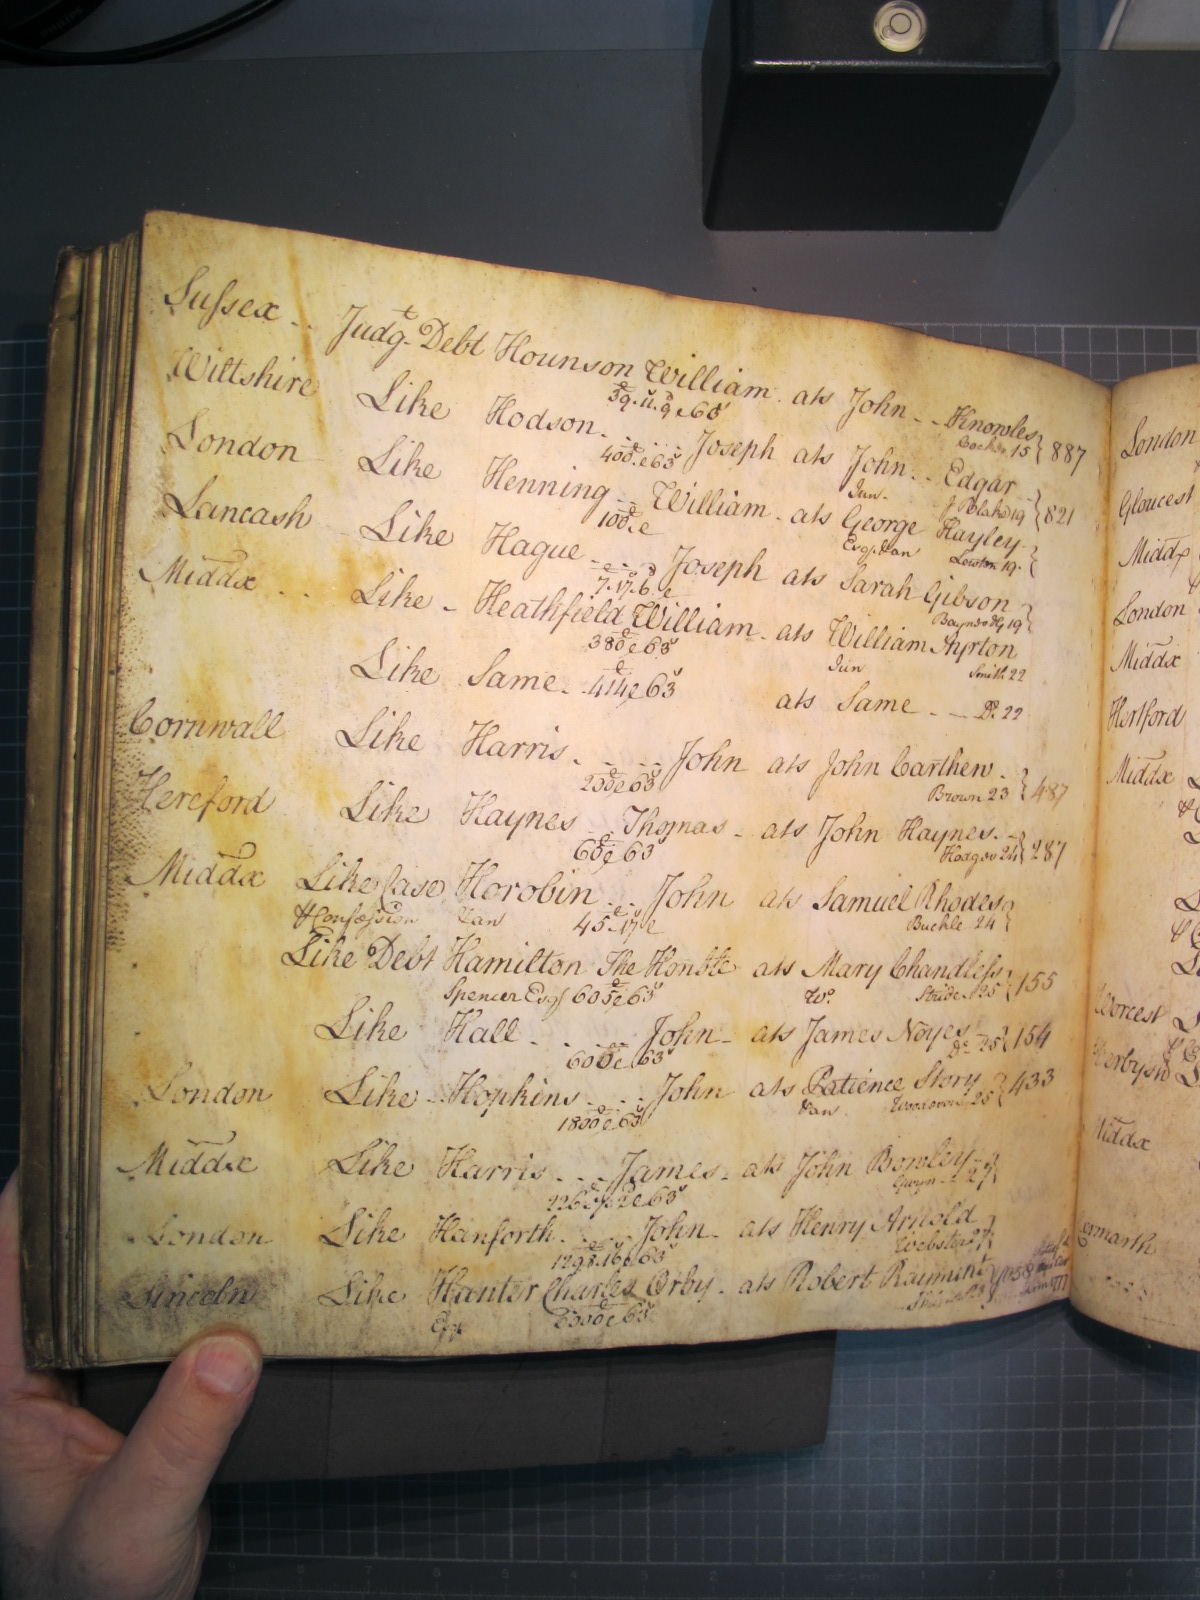 Sussex .. Judgt. Debt Hounson William . ats John .. Knowles
39.. 11. 9 e 63s 15 887
Wiltshire Like Hodson .... Joseph ats John .. Edgar
400 e 63s Jun. 19 821
London Like Henning .. William . ats George Hayley
100 e Esqr. 19
Lancash Like Hague .... Joseph ats Sarah Gibson
7.. 17. 6 e 19
Middx .. Like - Heathfield William . ats William Ayrton
380 e 63s Jun Smith 22
Like Same .. 414 e 63s ats Same .. Do. 22
Cornwall Like Harris .... John ats John Carthew .
250 e 63s Brown 23 487
Hereford Like Haynes .. Thomas . ats John Haynes .
60 e 63s 24 287
Middx Like Case Horobin ... John ats Samuel Rhodes
& Confession 45 .. 17 e 24
Like Debt Hamilton The Honble ats Mary Chandless
Spencer Esqr 605 e 63s Wo. Stride 25 155
Like Hall .... John . ats James Noyes
600 e 63s Do 25 154
London Like Hopkins .... John ats Patience Story
1800 e 63s 25 433
Middx Like Harris ... James . ats John Bowley
e 63s Gwyn 27
London Like Hanforth .... John ats Henry Arnold
1298 .. 16 e 63s Webster 27
Lincoln Like Hunter Charles Orby . ats Robert Raiment
Esqr e 63s
London
Gloucest
Middx
London
Middx
Hertford
Middx
Worcest
Derbysh
Middx